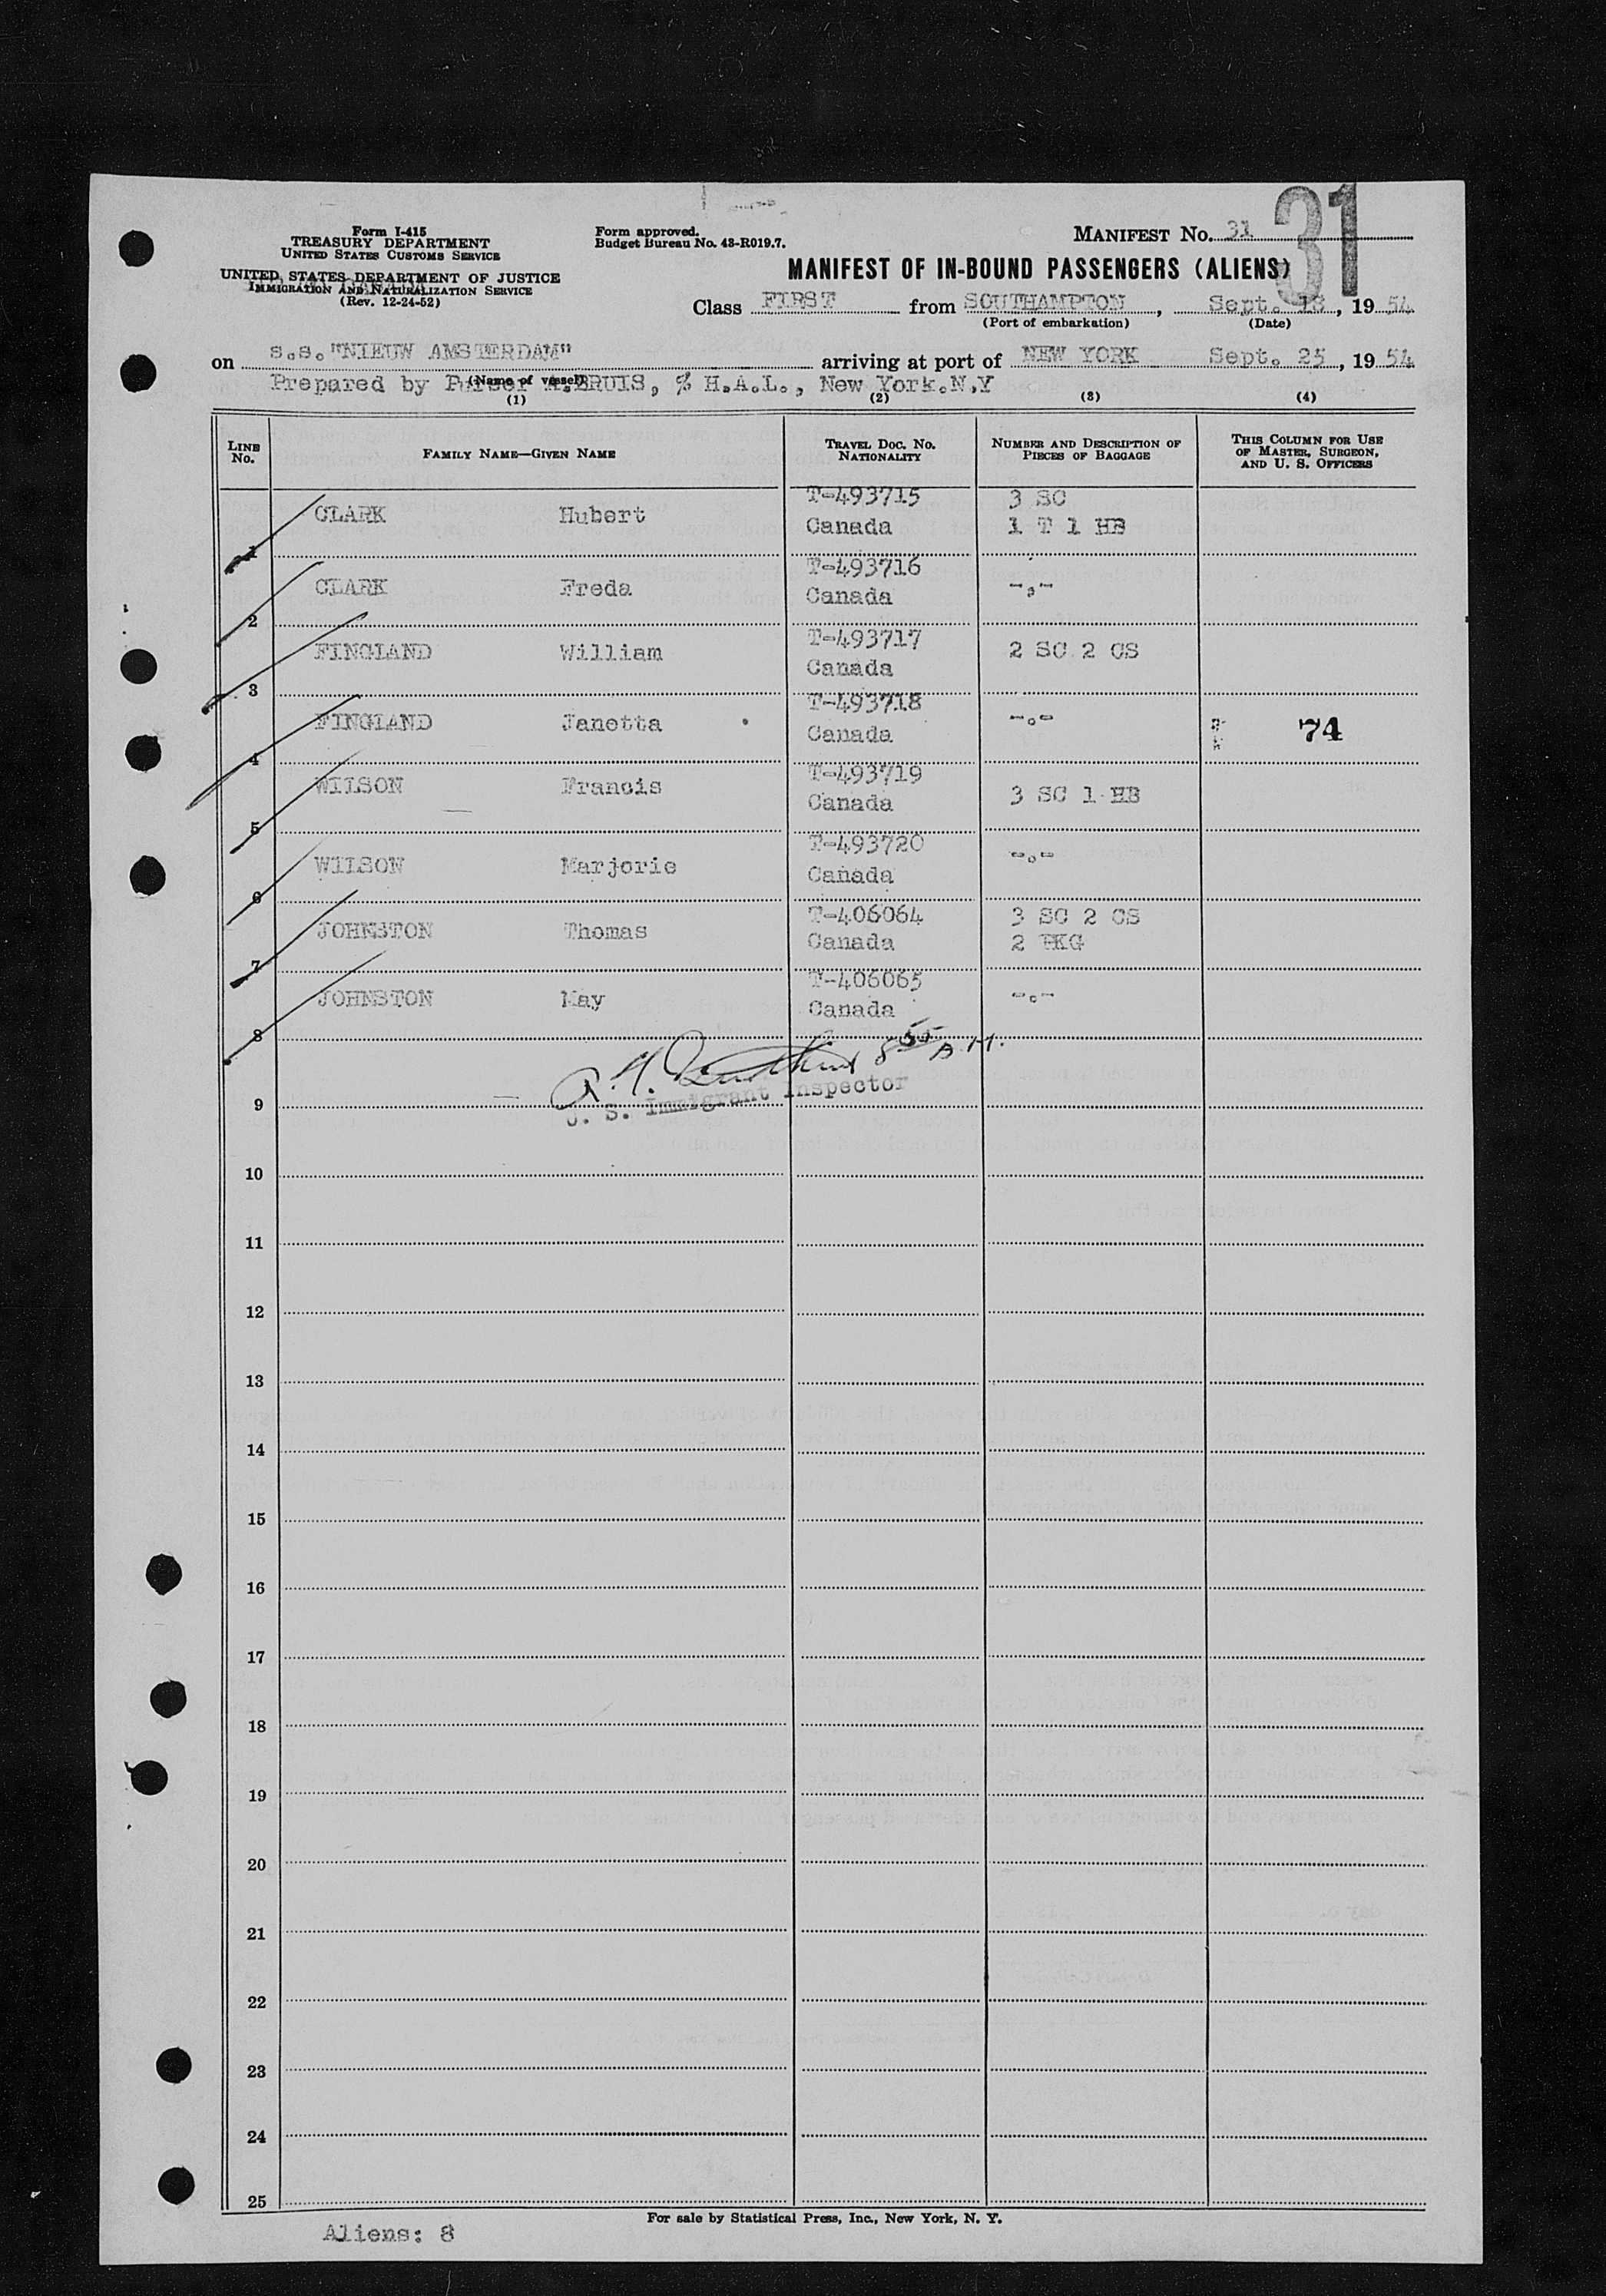 31
Form I-415
TREASURY DEPARTMENT
UNITED STATES CUSTOMS SERVICE
UNITED STATES DEPARTMENT OF JUSTICE
IMMIGRATION AND NATURALIZATION SERVICE
(Rev. 12-24-52)
Form approved.
Budget Bureau No. 43-R019.7.
MANIFEST No. 31
MANIFEST OF IN-BOUND PASSENGERS (ALIENS)
Class FIRST from SOUTHAMPTON, Sept. 18, 1954
(Port of embarkation) (Date)
on s.s. "NIEUW AMSTERDAM" arriving at port of NEW YORK Sept. 25, 1954
(Name of vessel)
Prepared by Purser BRUIS, % H.A.L., New York.N.Y
(1) (2) (3) (4)
LINE No. FAMILY NAME—GIVEN NAME TRAVEL DOC. No. NATIONALITY NUMBER AND DESCRIPTION OF PIECES OF BAGGAGE THIS COLUMN FOR USE OF MASTER, SURGEON, AND U. S. OFFICERS
1 CLARK Hubert T-493715 Canada 3 SC 1 T 1 HB
2 CLARK Freda T-493716 Canada -"-
3 FINGLAND William T-493717 Canada 2 SC 2 CS
4 FINGLAND Janetta T-493718 Canada -"- 74
5 WILSON Francis T-493719 Canada 3 SC 1 HB
6 WILSON Marjorie T-493720 Canada -"-
7 JOHNSTON Thomas T-406064 Canada 3 SC 2 CS 2 PKG
8 JOHNSTON May T-406065 Canada -"-
8 55 A.M.
U. S. Immigrant Inspector
9
10
11
12
13
14
15
16
17
18
19
20
21
22
23
24
25
For sale by Statistical Press, Inc., New York, N. Y.
Aliens: 8